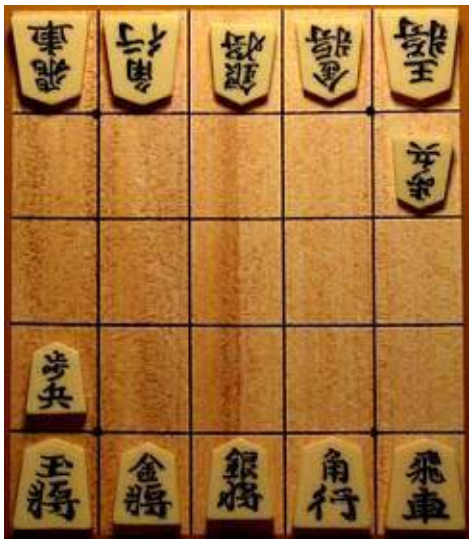 飛車 角行 銀將 金將 王將
歩兵
歩兵
玉將 金將 銀將 角行 飛車